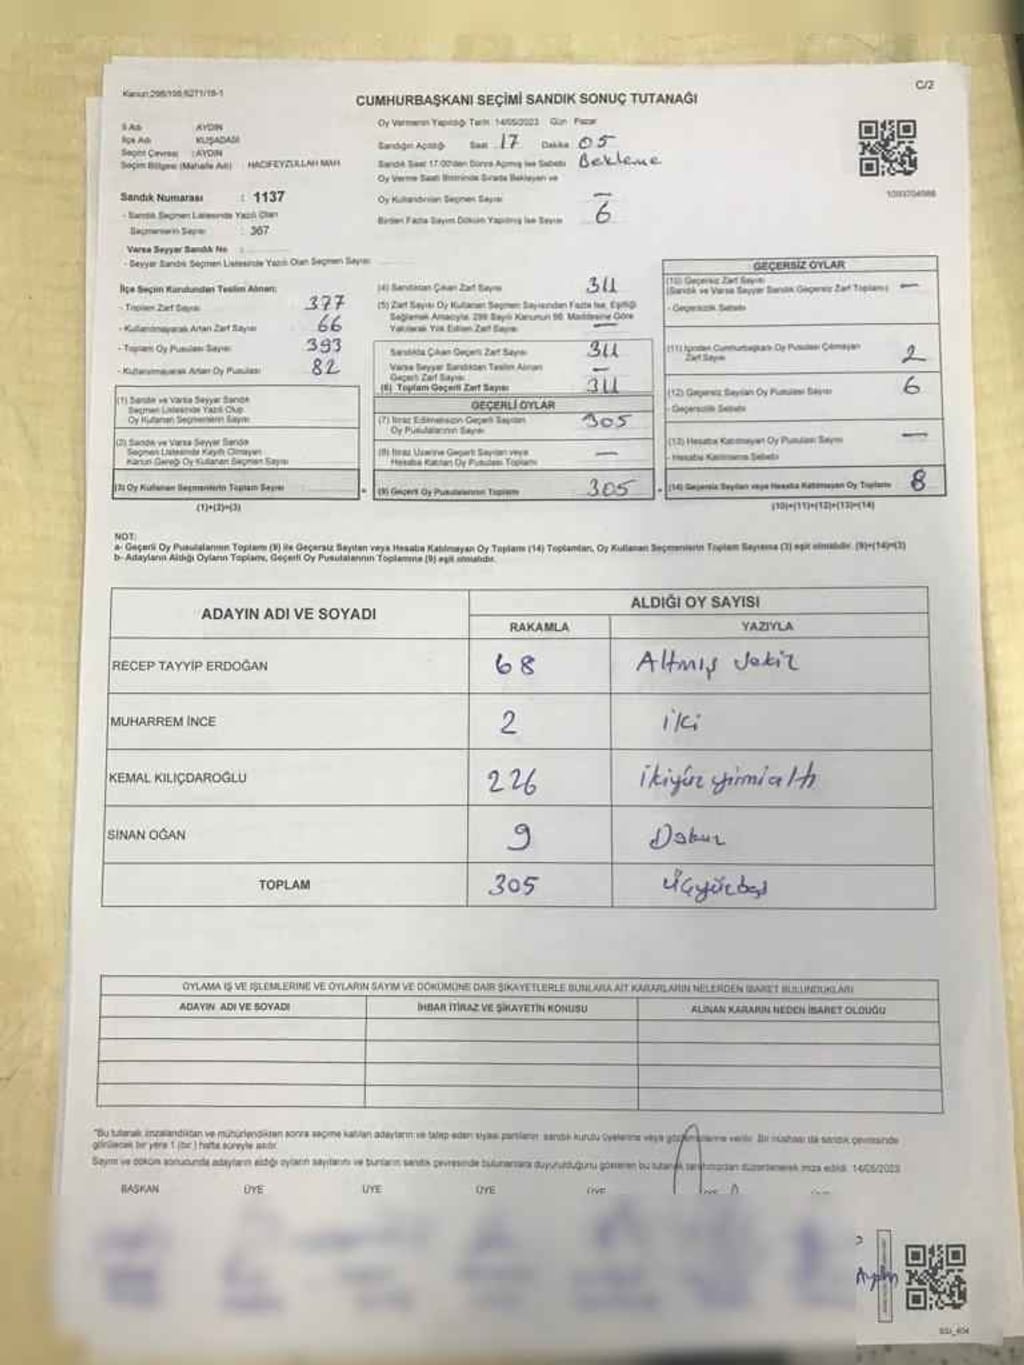 Kanun:298/105,6271/19-1
C/2
CUMHURBAŞKANI SEÇİMİ SANDIK SONUÇ TUTANAĞI
İl Adı : AYDIN
İlçe Adı : KUŞADASI
Seçim Çevresi : AYDIN
Seçim Bölgesi (Mahalle Adı) : HACIFEYZULLAH MAH.
Sandık Numarası : 1137
- Sandık Seçmen Listesinde Yazılı Olan
Seçmenlerin Sayısı : 367
Varsa Seyyar Sandık No :
- Seyyar Sandık Seçmen Listesinde Yazılı Olan Seçmen Sayısı:
Oy Vermenin Yapıldığı Tarih: 14/05/2023 Gün : Pazar
Sandığın Açıldığı Saat : 17 Dakika : 05
Sandık Saat 17:00'den Sonra Açılmış İse Sebebi : Bekleme
Oy Verme Saati Bitiminde Sırada Bekleyen ve
Oy Kullandırılan Seçmen Sayısı : —
Birden Fazla Sayım Döküm Yapılmış İse Sayısı : 6
1093704988
İlçe Seçim Kurulundan Teslim Alınan:
- Toplam Zarf Sayısı : 377
- Kullanılmayarak Artan Zarf Sayısı : 66
- Toplam Oy Pusulası Sayısı : 393
- Kullanılmayarak Artan Oy Pusulası : 82
(1) Sandık ve Varsa Seyyar Sandık
Seçmen Listesinde Yazılı Olup
Oy Kullanan Seçmenlerin Sayısı
(2) Sandık ve Varsa Seyyar Sandık
Seçmen Listesinde Kayıtlı Olmayan
Kanun Gereği Oy Kullanan Seçmen Sayısı
(3) Oy Kullanan Seçmenlerin Toplam Sayısı
(1)+(2)=(3)
(4) Sandıktan Çıkan Zarf Sayısı : 311
(5) Zarf Sayısı Oy Kullanan Seçmen Sayısından Fazla İse, Eşitliği
Sağlamak Amacıyla, 298 Sayılı Kanunun 98. Maddesine Göre
Yakılarak Yok Edilen Zarf Sayısı : —
Sandıkta Çıkan Geçerli Zarf Sayısı : 311
Varsa Seyyar Sandıktan Teslim Alınan
Geçerli Zarf Sayısı : —
(6) Toplam Geçerli Zarf Sayısı : 311
GEÇERLİ OYLAR
(7) İtiraz Edilmeksizin Geçerli Sayılan
Oy Pusulalarının Sayısı : 305
(8) İtiraz Üzerine Geçerli Sayılan veya
Hesaba Katılan Oy Pusulası Toplamı : —
(9) Geçerli Oy Pusulalarının Toplamı : 305
GEÇERSİZ OYLAR
(10) Geçersiz Zarf Sayısı
(Sandık ve Varsa Seyyar Sandık Geçersiz Zarf Toplamı) : —
- Geçersizlik Sebebi :
(11) İçinden Cumhurbaşkanı Oy Pusulası Çıkmayan
Zarf Sayısı : 2
(12) Geçersiz Sayılan Oy Pusulası Sayısı : 6
- Geçersizlik Sebebi :
(13) Hesaba Katılmayan Oy Pusulası Sayısı : —
- Hesaba Katılmama Sebebi :
(14) Geçersiz Sayılan veya Hesaba Katılmayan Oy Toplamı : 8
(10)+(11)+(12)+(13)=(14)
NOT:
a- Geçerli Oy Pusulalarının Toplamı (9) ile Geçersiz Sayılan veya Hesaba Katılmayan Oy Toplamı (14) Toplamları, Oy Kullanan Seçmenlerin Toplam Sayısına (3) eşit olmalıdır. (9)+(14)=(3)
b- Adayların Aldığı Oyların Toplamı, Geçerli Oy Pusulalarının Toplamına (9) eşit olmalıdır.
ADAYIN ADI VE SOYADI
ALDIĞI OY SAYISI
RAKAMLA YAZIYLA
RECEP TAYYİP ERDOĞAN 68 Altmış sekiz
MUHARREM İNCE 2 iki
KEMAL KILIÇDAROĞLU 226 ikiyüz yirmialtı
SİNAN OĞAN 9 Dokuz
TOPLAM 305 üçyüzbeş
OYLAMA İŞ VE İŞLEMLERİNE VE OYLARIN SAYIM VE DÖKÜMÜNE DAİR ŞİKAYETLERLE BUNLARA AİT KARARLARIN NELERDEN İBARET BULUNDUKLARI
ADAYIN ADI VE SOYADI İHBAR İTİRAZ VE ŞİKAYETİN KONUSU ALINAN KARARIN NEDEN İBARET OLDUĞU
"Bu tutanak imzalandıktan ve mühürlendikten sonra seçime katılan adayların ve talep eden siyasi partilerin sandık kurulu üyelerine veya gözlemcilerine verilir. Bir nüshası da sandık çevresinde
görülecek bir yere 1 (bir ) hafta süreyle asılır.
Sayım ve döküm sonucunda adayların aldığı oyların sayılarını ve bunların sandık çevresinde bulunanlara duyurulduğunu gösteren bu tutanak tarafımızdan düzenlenerek imza edildi. 14/05/2023
BAŞKAN ÜYE ÜYE ÜYE ÜYE